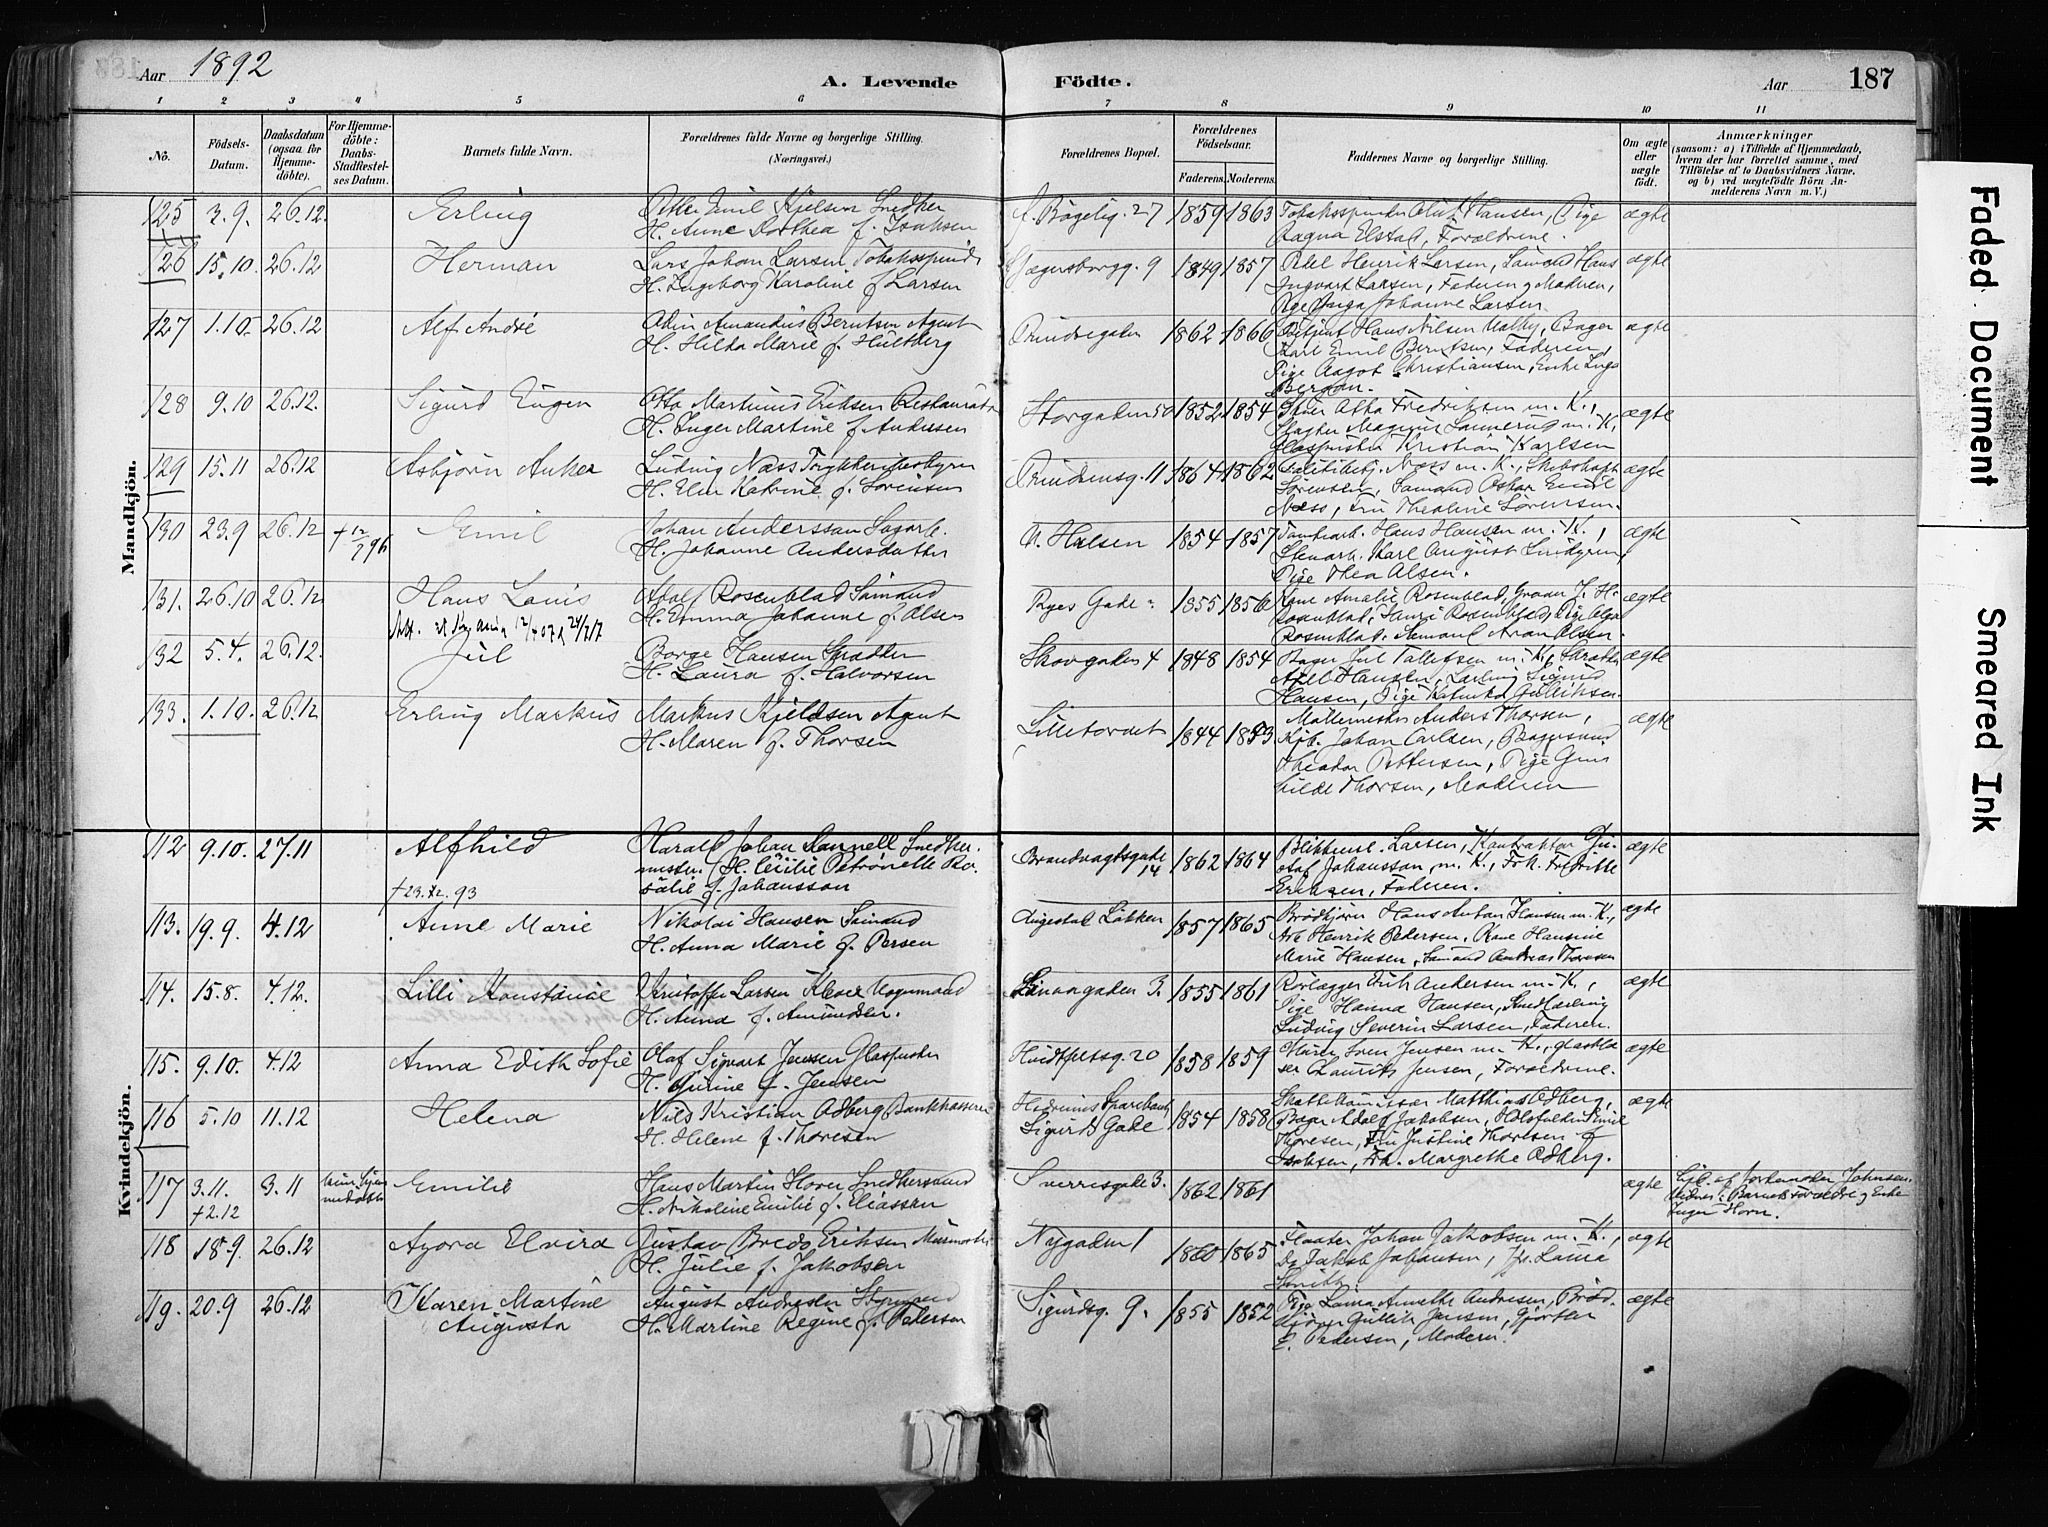 Aar 1892
A. Levende
Födte.
Aar
187
1 2 3 4 5 6 7 8 9 10 11
No.
Födsels-Datum.
Daabsdatum (ogsaa for Hjemme-döbte).
For Hjemme-döbte: Daabs-Stadfæstel-ses Datum.
Barnets fulde Navn.
Forældrenes fulde Navne og borgerlige Stilling.
(Næringsvei.)
Forældrenes Bopæl.
Forældrenes Födselsaar.
Faderens. Moderens.
Faddernes Navne og borgerlige Stilling.
Om ægte eller uægte födt.
Anmærkninger
(saasom: a) i Tilfælde af Hjemmedaab,
hvem der har forrettet samme, med
Tilföielse af to Daabsvidners Navne,
og b) ved uægtefödte Börn An-
melderens Navn m. V.)
Mandkjön.
125 3.9. 26.12. Erling
Otto Emil Kjelsen Snedker
H. Anne Dorthea f. Isaksen
Bögelig. 27 1859 1863
Tobaksspinder Oluf Hansen, Pige
Ragna Elstad, Forældrene.
ægte
126 15.10. 26.12 Herman
Lars Johan Larsen Tobaksspind.
H. Ingeborg Karoline f. Larsen
Jegersborgg. 9 1849 1857
Henrik Larsen, Sömand Hans
Ingvart Larsen, Faderen, Moderen,
Pige Inga Johanne Larsen
ægte
127 1.10. 26.12 Alf André
Odin Amandus Berntsen Agent
H. Hilda Marie f. Hultberg
Prindsegaden 1862 1860
Betjent Hans Nilsen Bager
Karl Emil Berntsen, Faderen,
Pige Aagot Christiansen, Enke Inga
Bergan.
ægte
128 9.10 26.12. Sigurd Eugen
Otto Martinius Eriksen Restauratör
H. Inger Martine f. Andersen
Storgaden 50 1852 1854
Fredriksen m. K.,
Slagter Magnus m. K.
Glaspuster Kristian Karlsen
ægte
129 15.11 26.12 Asbjörn Anker
Ludvig Næss
H. Elen Katrine f. Sörensen
Prindsensg. 11 1864 1862
Politibetj. Næss m. K., Skibskapt.
Sörensen, Sömand Oskar Emil
Næss, Fru Thealine Sörensen.
ægte
130 23.9 26.12 † 12/2 96 Emil
Johan Anderssen Sagarb.
H. Johanne Andersdatter
Halsen 1854 1857
Tomtearb. Hans Hansen m. K.,
Stenarb. Karl August Lindgren,
Pige Thea Olsen.
ægte
131. 26.10 26.12 Hans Louis
Adolf Rosenblad Sömand
H. Emma Johanne f. Olsen
Gade 1855 1856
Kone Amalie Rosenblad, H.
Rosenblad, Rosenblad, Pige Olga
Rosenblad. Sömand Aron Olsen.
ægte
132 5.4. 26.12. Jul
Börge Hansen Skrædder
H. Laura f. Halvorsen
Skovgaden 4 1848 1854
Bager Jul Tollefsen m. K.,
Axel Hansen, Lærling Sigurd
Hansen, Pige Gulliksen.
ægte
133. 1.10. 26.12 Erling Markus
Markus Kjeldsen Agent
H. Maren f. Thorsen
Lilletorvet 1844 1853
Möllemester Anders Thorsen,
Kjb. Johan Carlsen, Bagersvend
Theodor Pettersen, Pige Gun
hilde Thorsen, Moderen
ægte
Kvindekjön.
112 9.10. 27.11 Alfhild
† 23.12.93
Harald Johan Dannell Snedker-
mester. (H. Cecilie Petronelle Ro-
salie f. Johansson
Brandvagtsgade 14 1862 1864
Blikkensl. Larsen, Kontraktör Gu-
staf Johansson m. K., Frk. Fredrikke
Eriksen, Faderen.
ægte
113. 19.9. 4.12 Anne Marie
Nikolai Hansen Sömand
H. Anna Marie f. Persen
Angestad Lökken 1857 1865
Brödkjörer Hans Anton Hansen m. K.,
Arb. Henrik Pedersen, Kone Hansine
Marie Hansen, Sömand Andreas Thoresen
ægte
114. 15.8. 4.12. Lilli Konstanse
Kristoffer Larsen Klever Vognmand
H. Anna f. Amundsen.
3. 1855 1861
Rörlægger Erik Andersen m. K.,
Pige Hanna Hansen, Snedkerlærling
Ludvig Severin Larsen, Faderen.
ægte
115. 9.10. 4.12 Anna Edith Sofie
Olaf Sigvart Jensen Glaspuster
H. Gurine f. Jensen
Hvidtfeldtsg. 20 1858 1859
Murer Sören Jensen m. K., Glasblæ
ser Laurits Jensen, Forældrene.
ægte
116 5.10 11.12 Helena
Nils Kristian Ödberg Bankkasserer
H. Helene f. Thoresen
Hedrums Sparebank
Sigurds Gade 1854 1858
Skattekommissær Matthias Ödberg,
Bager Adolf Jakobsen, Emil
Thoresen, Fru Justine Thoresen f.
Isaksen, Frk. Margrethe Ödberg.
ægte
117 3.11. 3.11 Emilie
† 2.12
Hans Martin Hover Snedkersvend
H. Nikoline Emilie f. Eliassen
Sverresgade 3. 1862 1861
ægte
af Jordemoder Johnsen.
Vidner: Barnets Forældre, Enke
Inger Horn.
118 18.9. 26.12 Agora Elvira
Gustav Breds Eriksen Murmester
H. Julie f. Jakobsen
Nygaden 1 1860 1865
Johan Jakobsen m. K.,
Do Jakob Johansen, Jfr. Laura
Smith.
ægte
119. 20.9 26.12 Karen Martine
Augusta
August Andresen Styrmand
H. Martine Regine f. Pedersen
Sigurdsg. 9. 1855 1852
Pige Laura Annette Andresen, Bröd-
kjörer Gullik Jensen, Gjörtler
E. Pedersen, Moderen.
ægte
Faded Document
Smeared Ink